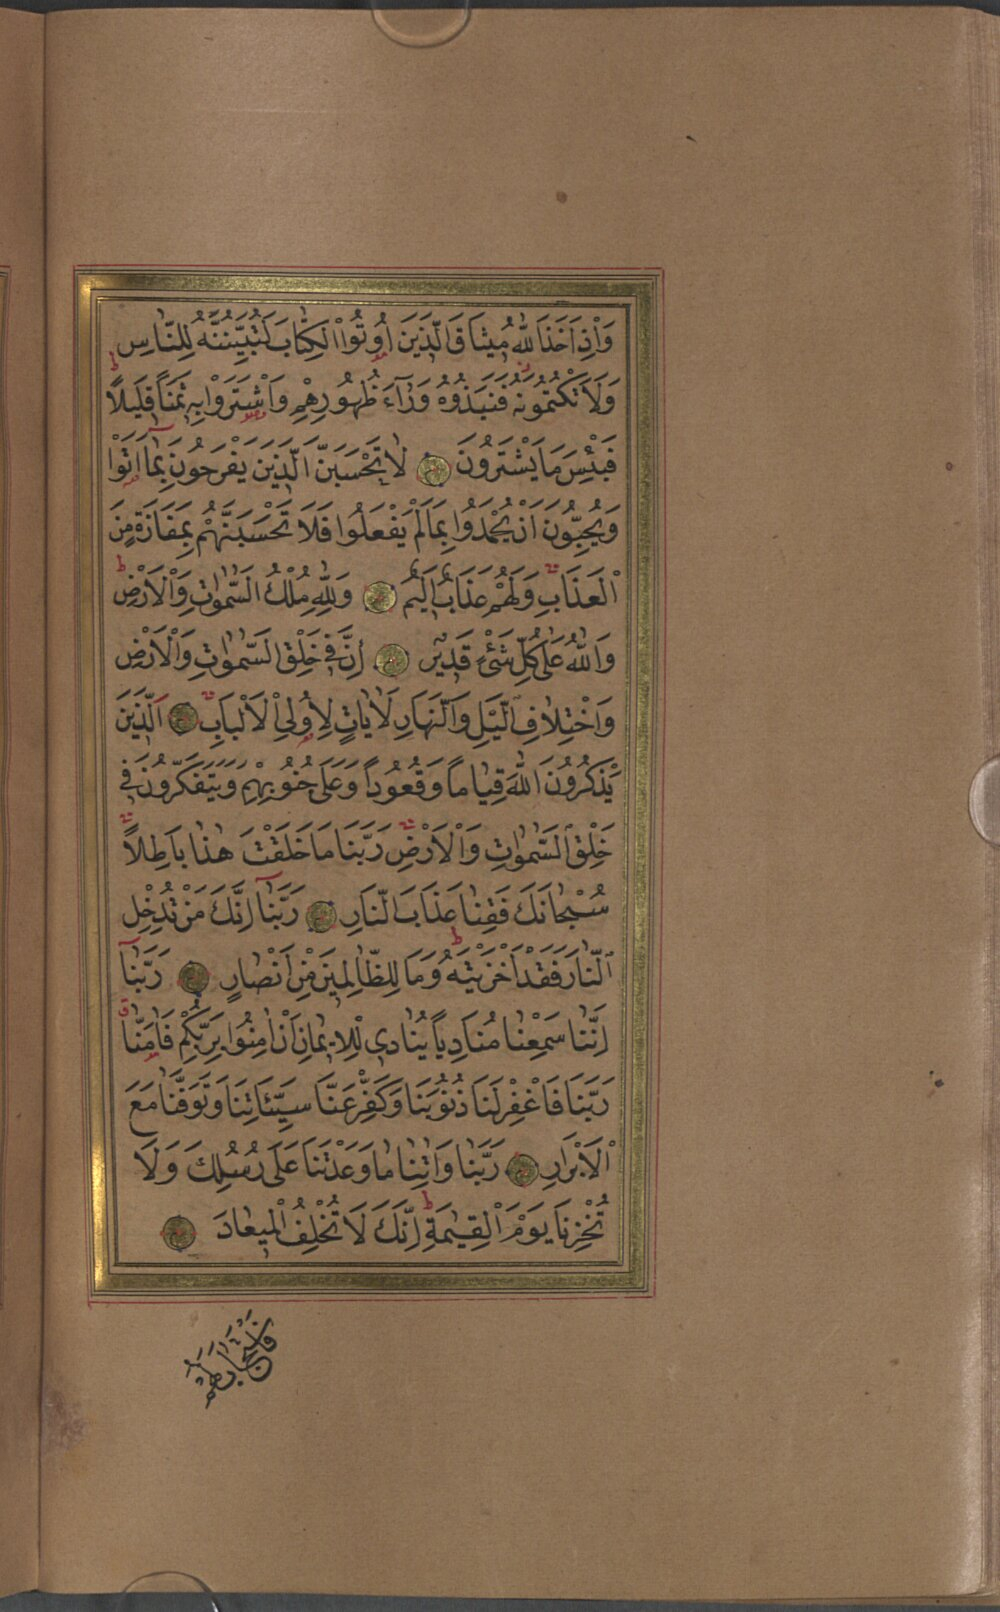 وَاِذْ اَخَذَ اللّٰهُ مِيثَاقَ الَّذِينَ اُوتُوا الْكِتَابَ لَتُبَيِّنُنَّهُ لِلنَّاسِ
وَلَا تَكْتُمُونَهُ فَنَبَذُوهُ وَرَٓاءَ ظُهُورِهِمْ وَاشْتَرَوْا بِهِ ثَمَنًا قَلِيلًا
فَبِئْسَ مَا يَشْتَرُونَ لَا تَحْسَبَنَّ الَّذِينَ يَفْرَحُونَ بِمَٓا اَتَوْا
وَيُحِبُّونَ اَنْ يُحْمَدُوا بِمَا لَمْ يَفْعَلُوا فَلَا تَحْسَبَنَّهُمْ بِمَفَازَةٍ مِنَ
الْعَذَابِ وَلَهُمْ عَذَابٌ اَلِيمٌ وَلِلّٰهِ مُلْكُ السَّمٰوَاتِ وَالْاَرْضِ
وَاللّٰهُ عَلٰى كُلِّ شَيْءٍ قَدِيرٌ اِنَّ فِي خَلْقِ السَّمٰوَاتِ وَالْاَرْضِ
وَاخْتِلَافِ الَّيْلِ وَالنَّهَارِ لَاٰيَاتٍ لِاُولِي الْاَلْبَابِ اَلَّذِينَ
يَذْكُرُونَ اللّٰهَ قِيَامًا وَقُعُودًا وَعَلٰى جُنُوبِهِمْ وَيَتَفَكَّرُونَ فِي
خَلْقِ السَّمٰوَاتِ وَالْاَرْضِ رَبَّنَا مَا خَلَقْتَ هٰذَا بَاطِلًا
سُبْحَانَكَ فَقِنَا عَذَابَ النَّارِ رَبَّنَٓا اِنَّكَ مَنْ تُدْخِلِ
النَّارَ فَقَدْ اَخْزَيْتَهُ وَمَا لِلظَّالِمِينَ مِنْ اَنْصَارٍ رَبَّنَٓا
اِنَّنَا سَمِعْنَا مُنَادِيًا يُنَادِي لِلْاِيمَانِ اَنْ اٰمِنُوا بِرَبِّكُمْ فَاٰمَنَّا
رَبَّنَا فَاغْفِرْ لَنَا ذُنُوبَنَا وَكَفِّرْ عَنَّا سَيِّئَاتِنَا وَتَوَفَّنَا مَعَ
الْاَبْرَارِ رَبَّنَا وَاٰتِنَا مَا وَعَدْتَنَا عَلٰى رُسُلِكَ وَلَا
تُخْزِنَا يَوْمَ الْقِيٰمَةِ اِنَّكَ لَا تُخْلِفُ الْمِيعَادَ
فَاسْتَجَابَ لَهُمْ